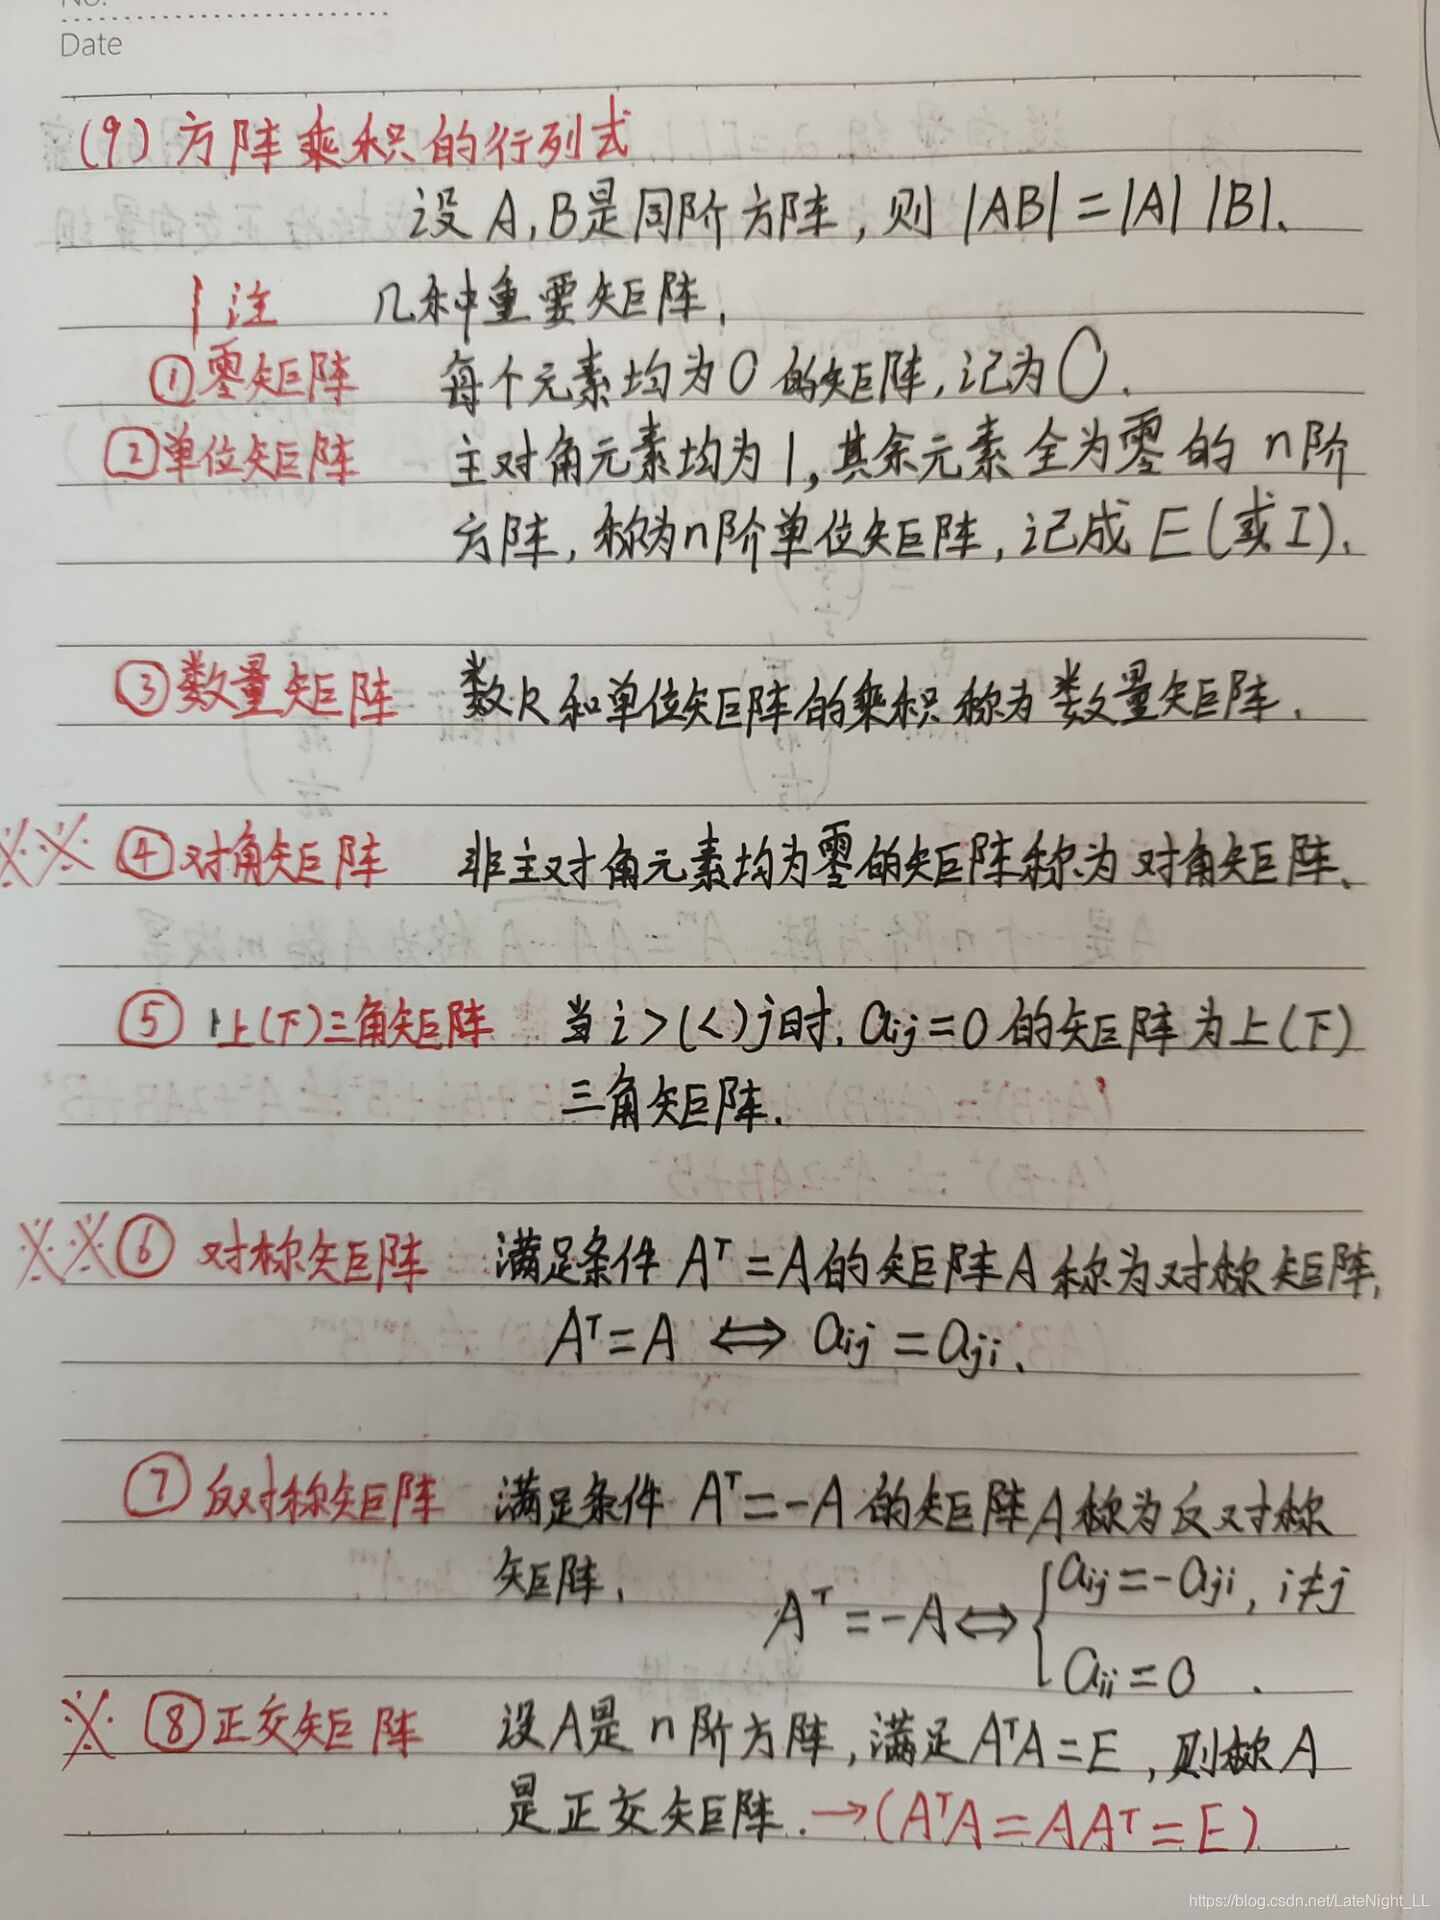 Date
(9) 方阵乘积的行列式
设 A,B是同阶方阵，则 |AB|=|A| |B|.
注 几种重要矩阵.
①零矩阵 每个元素均为0的矩阵,记为O.
②单位矩阵 主对角元素均为1,其余元素全为零的 n阶
方阵,称为n阶单位矩阵,记成E(或I).
③数量矩阵 数k和单位矩阵的乘积称为数量矩阵.
※※ ④对角矩阵 非主对角元素均为零的矩阵称为对角矩阵.
⑤ 上(下)三角矩阵 当i>(<)j时. aij=0的矩阵为上(下)
三角矩阵.
※※⑥ 对称矩阵 满足条件 Aᵀ=A的矩阵A称为对称矩阵,
Aᵀ=A ⇔ aij=aji.
⑦反对称矩阵 满足条件 Aᵀ=-A的矩阵A称为反对称
矩阵.
Aᵀ=-A⇔{aij=-aji, i≠j
aii=0 .
※ ⑧正交矩阵 设A是 n阶方阵,满足AᵀA=E,则称A
是正交矩阵.→(AᵀA=AAᵀ=E)
https://blog.csdn.net/LateNight_LL